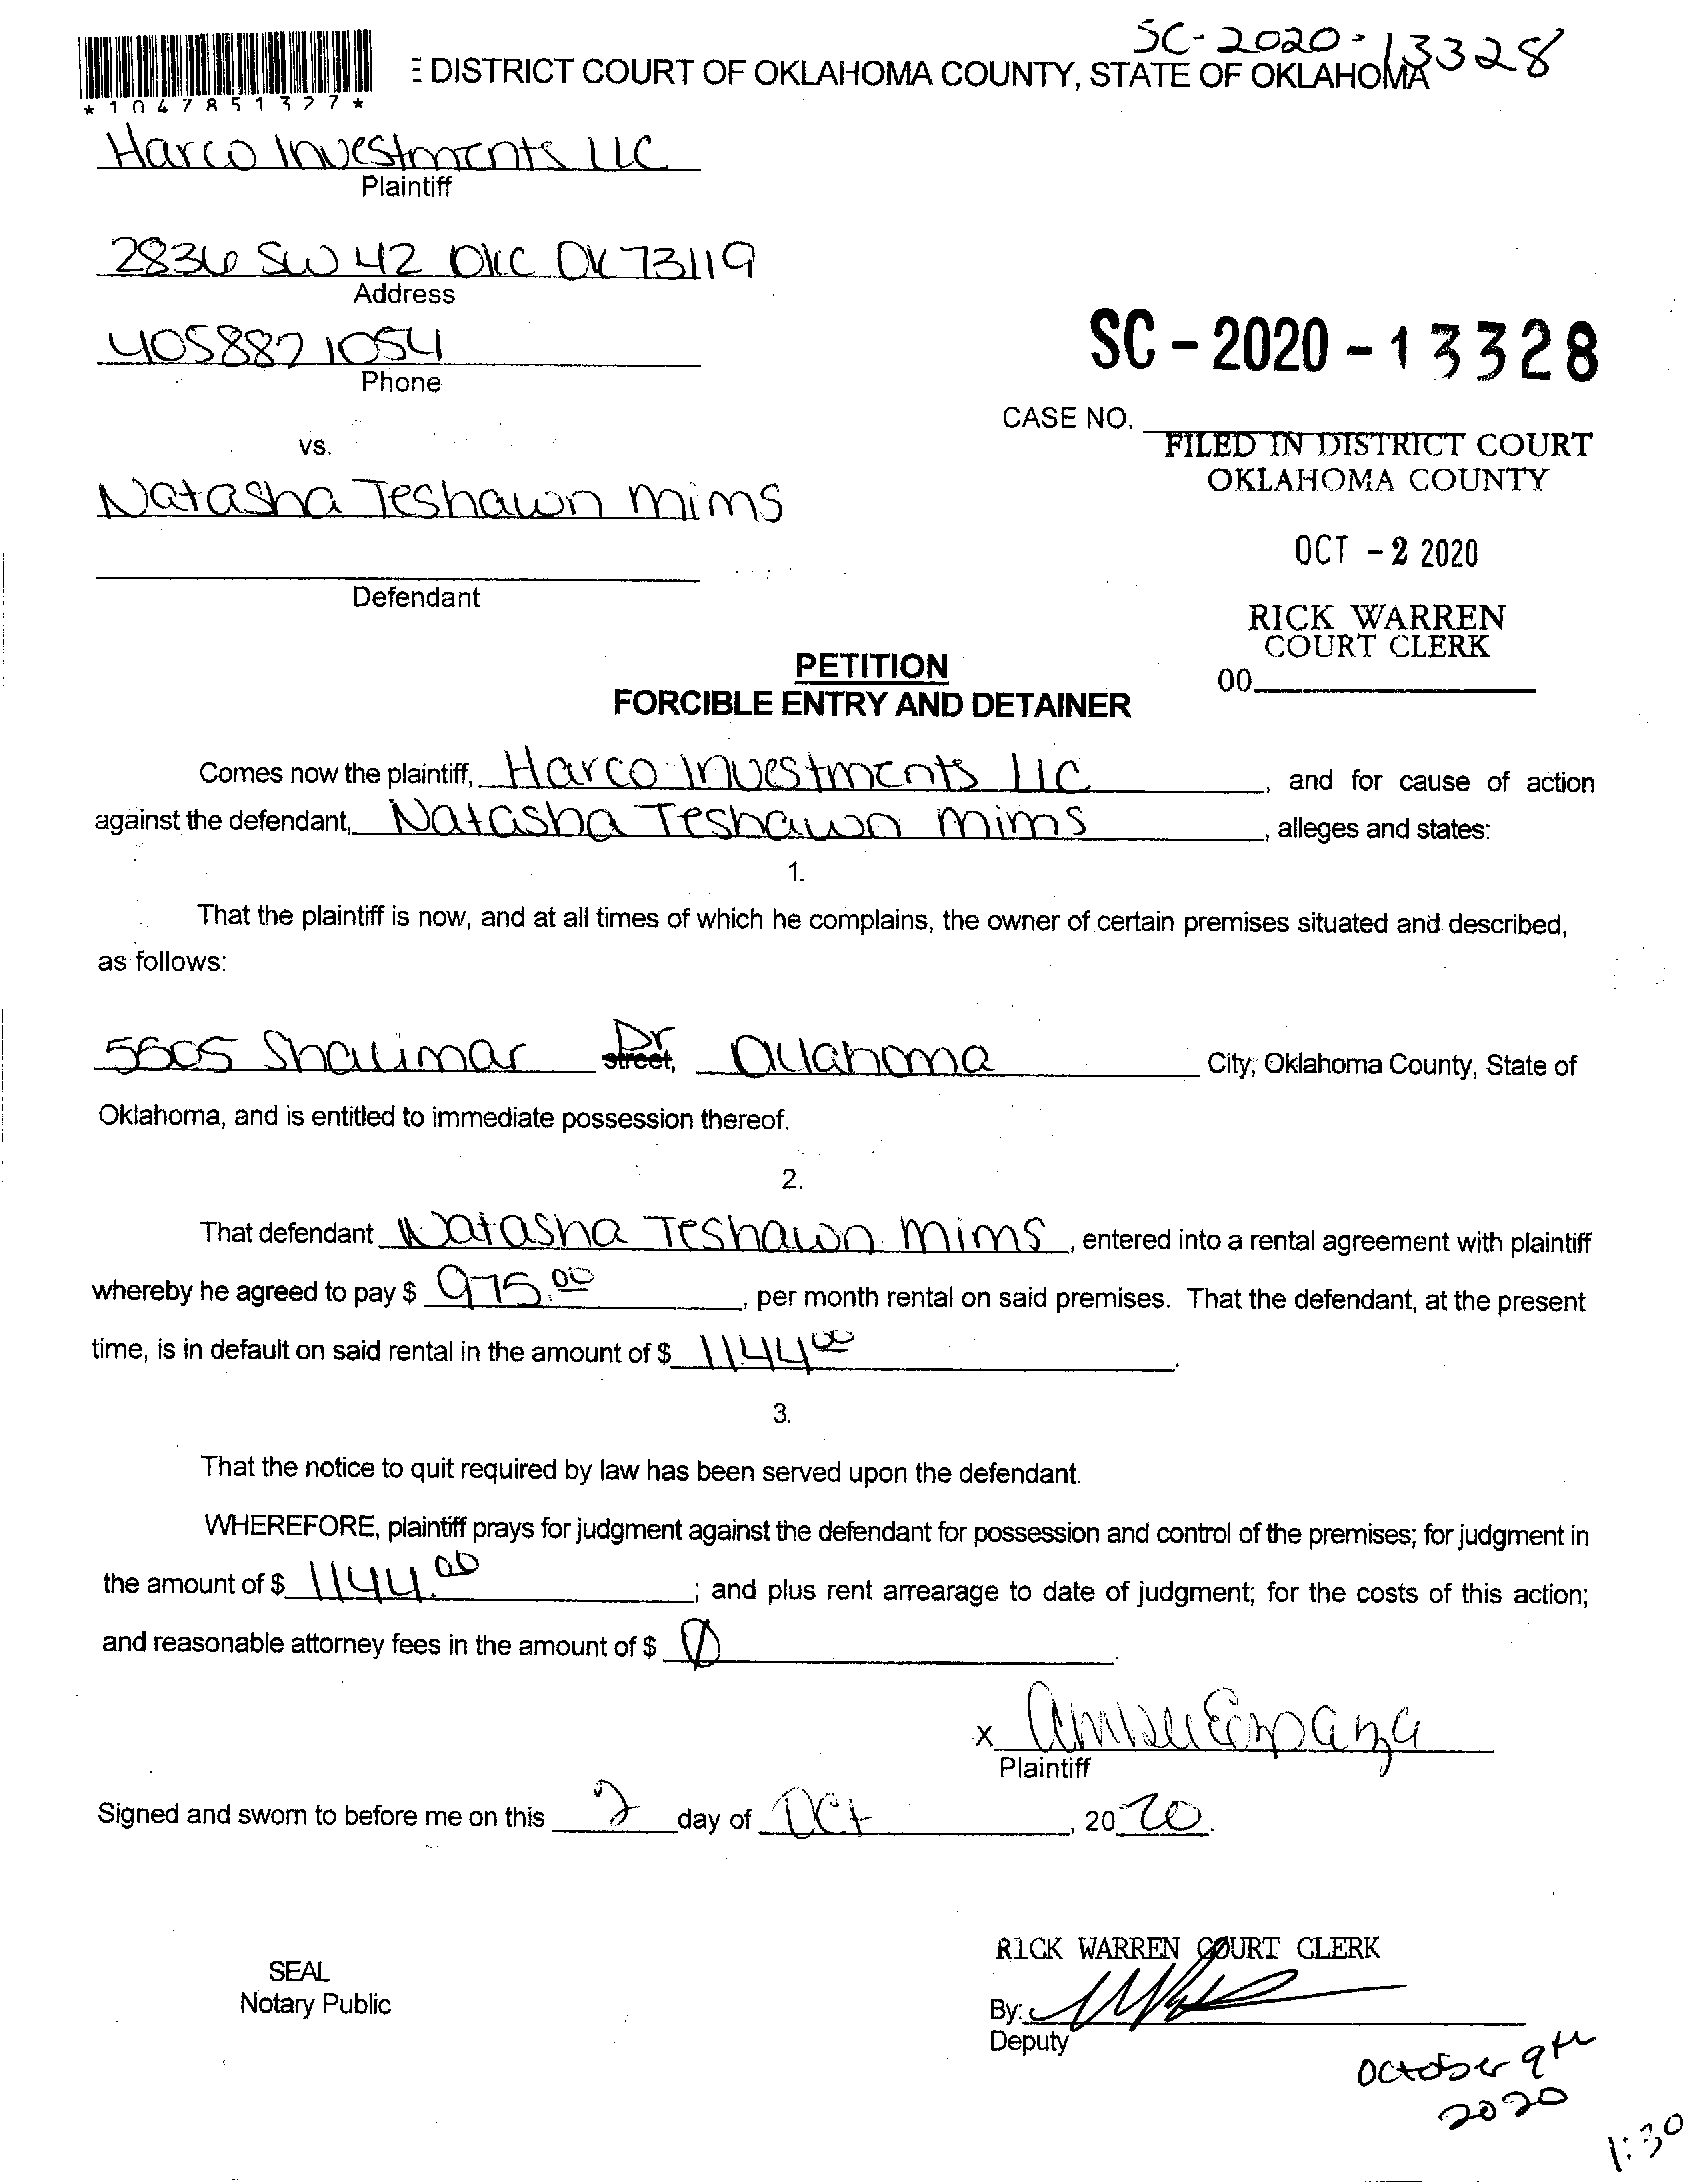 SC-2020-13328
E DISTRICT COURT OF OKLAHOMA COUNTY, STATE OF OKLAHOMA
*1047851327*
Harco Investments LLC
Plaintiff
2836 SW 42 OKC OK 73119
Address
4058871054
Phone
SC-2020-13328
CASE NO.
vs.
FILED IN DISTRICT COURT
OKLAHOMA COUNTY
Natasha Teshawn Mims
OCT -2 2020
Defendant
RICK WARREN
COURT CLERK
PETITION
00
FORCIBLE ENTRY AND DETAINER
Comes now the plaintiff, Harco Investments LLC, and for cause of action
against the defendant, Natasha Teshawn Mims, alleges and states:
1.
That the plaintiff is now, and at all times of which he complains, the owner of certain premises situated and described,
as follows:
5605 Shalimar Dr street, Oklahoma City, Oklahoma County, State of
Oklahoma, and is entitled to immediate possession thereof.
2.
That defendant Natasha Teshawn Mims, entered into a rental agreement with plaintiff
whereby he agreed to pay $ 975.00, per month rental on said premises. That the defendant, at the present
time, is in default on said rental in the amount of $ 1144 00.
3.
That the notice to quit required by law has been served upon the defendant.
WHEREFORE, plaintiff prays for judgment against the defendant for possession and control of the premises; for judgment in
the amount of $ 1144.00; and plus rent arrearage to date of judgment; for the costs of this action;
and reasonable attorney fees in the amount of $ 0.
x
Plaintiff
Signed and sworn to before me on this 2 day of Oct, 2020.
RICK WARREN COURT CLERK
SEAL
Notary Public
By:
Deputy
October 9th
2020
1:30